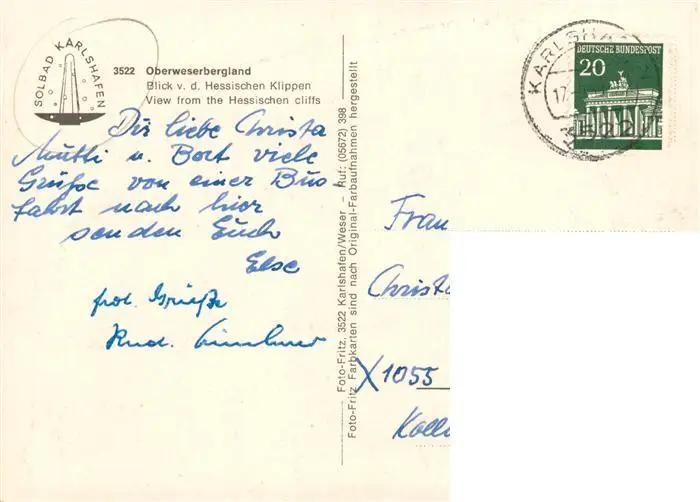 SOLBAD KARLSHAFEN
3522 Oberweserbergland
Blick v. d. Hessischen Klippen
View from the Hessischen cliffs
Dir liebe Christa
Mutti u. Bort viele
Grüße von einer Bus-
fahrt nach hier
senden Euch
Else
frdl. Grüße
Rud.
Foto-Fritz, 3522 Karlshafen/Weser – Ruf: (05672) 398
Foto-Fritz Farbkarten sind nach Original-Farbaufnahmen hergestellt
KARLSHA
17.
3522
DEUTSCHE BUNDESPOST
20
Frau
Christa
X1055